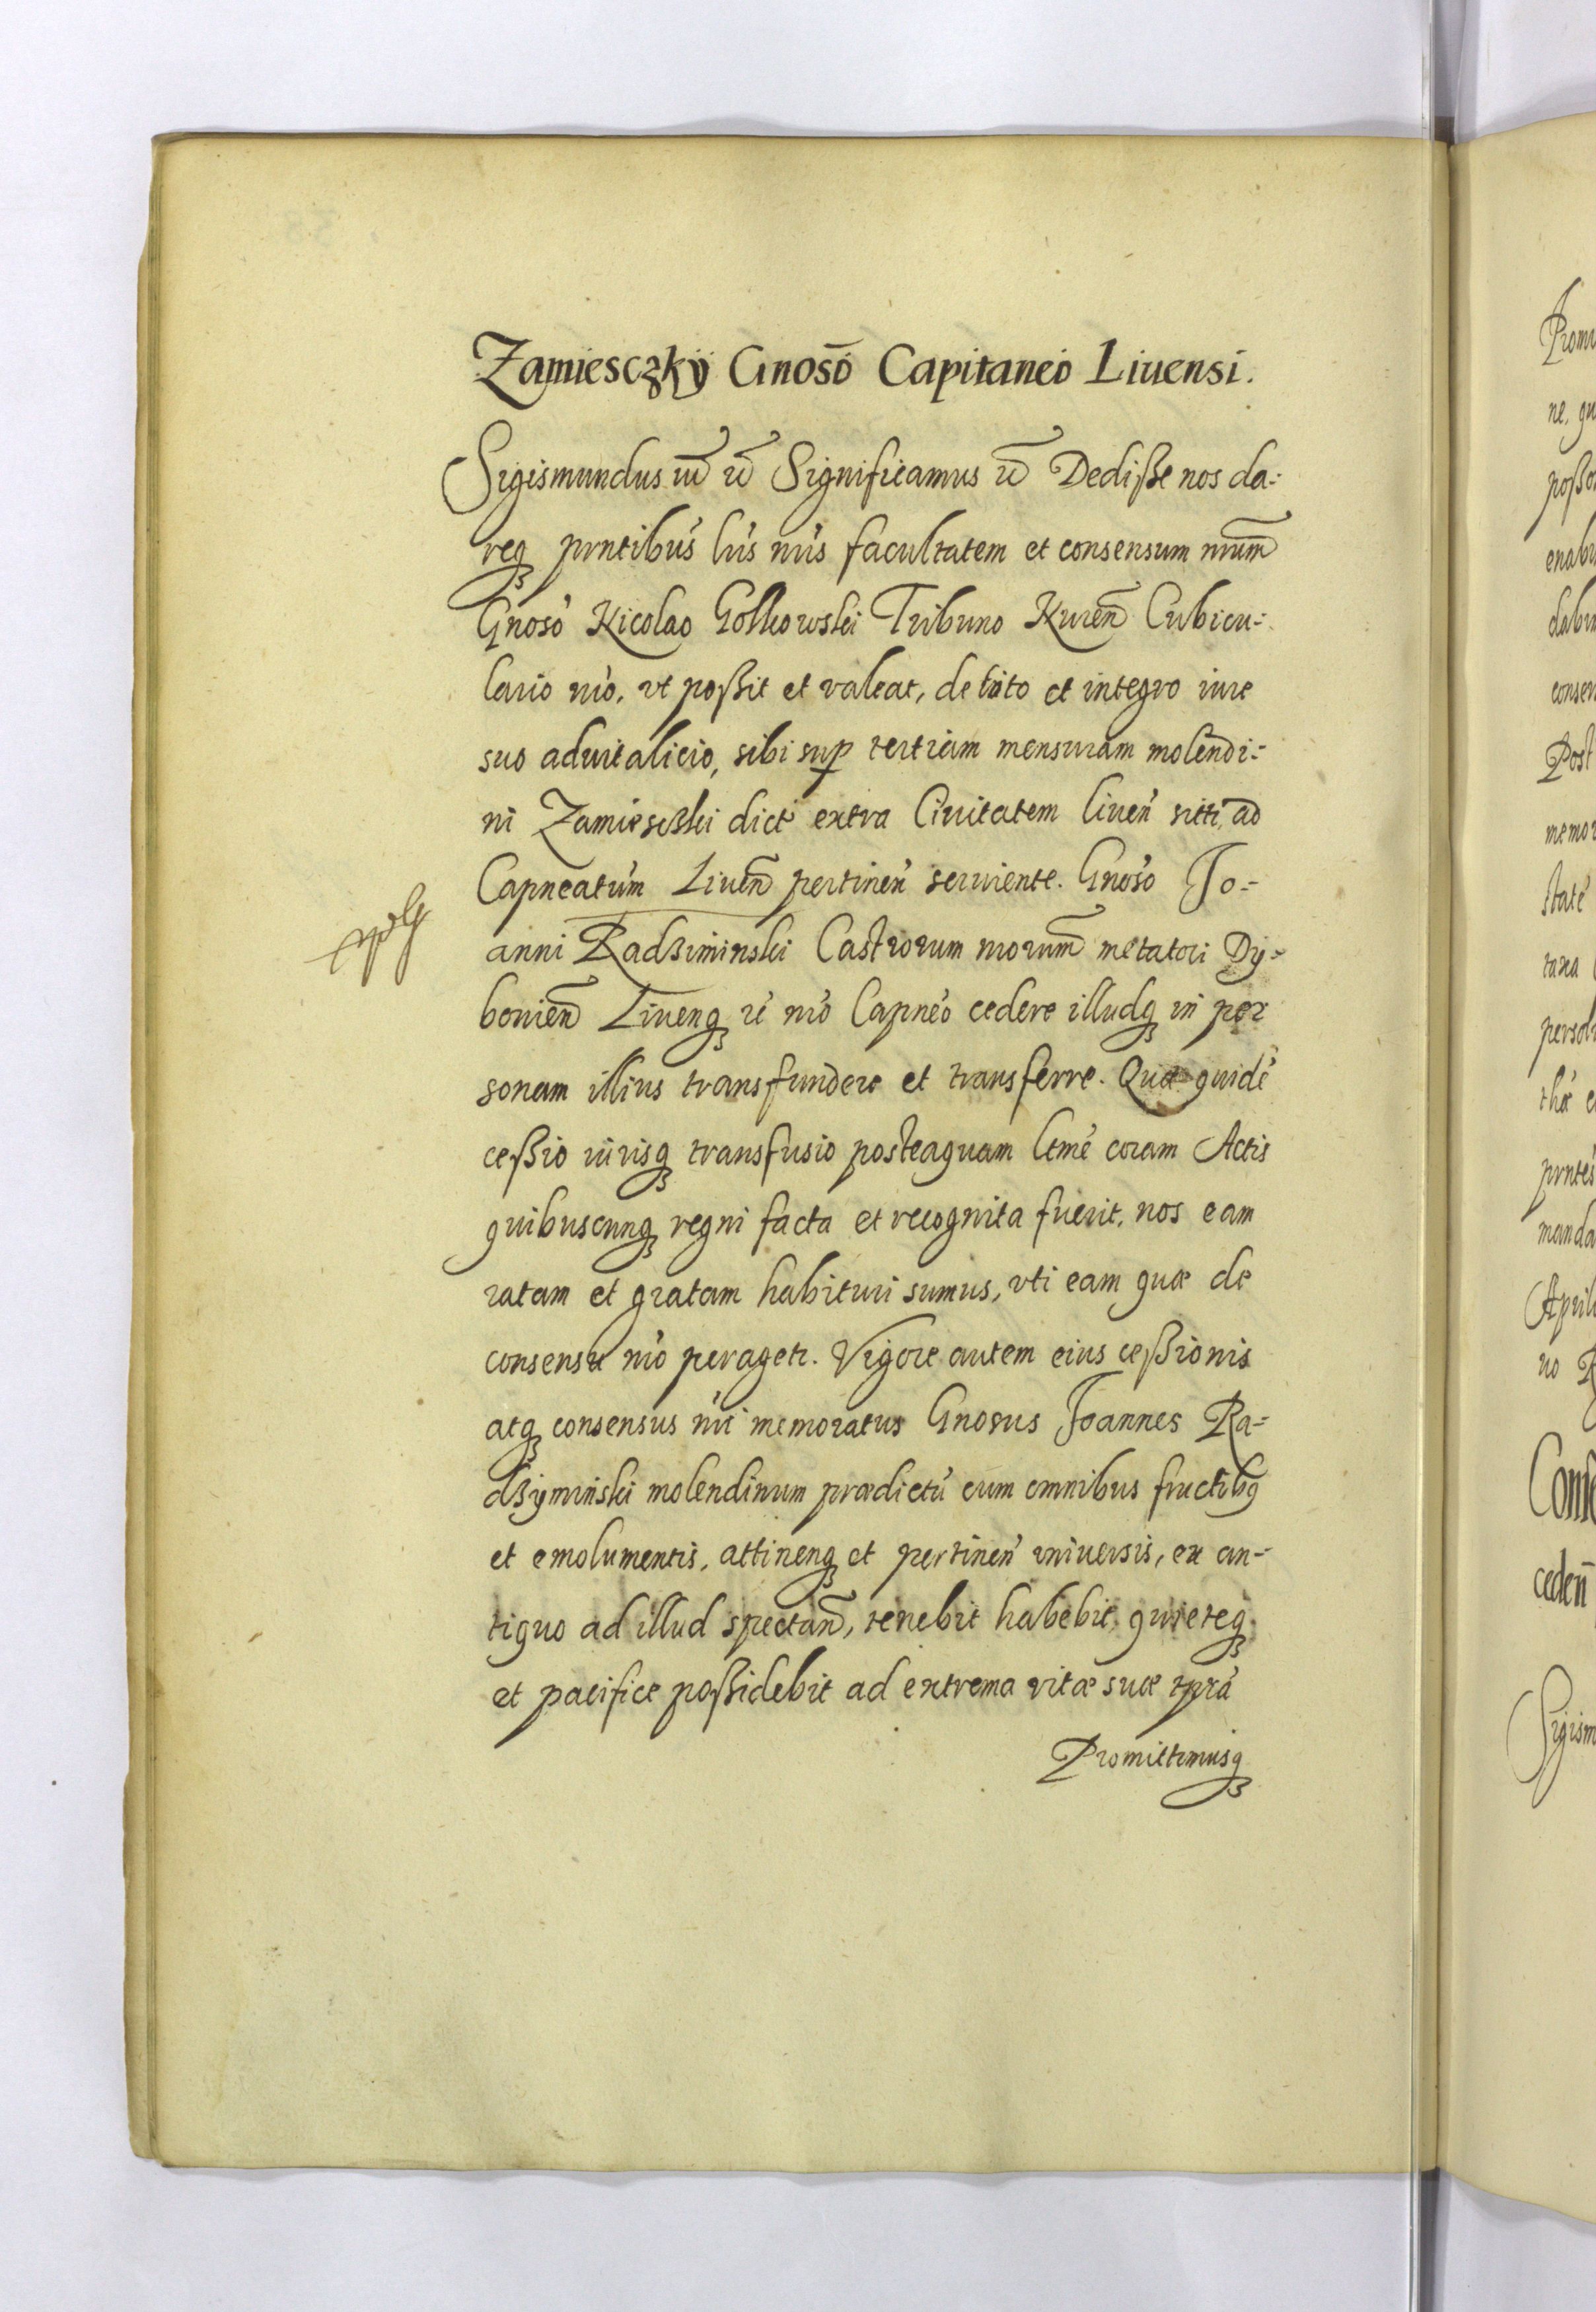 Zamiesczkÿ Gnosō Capitaneo Liuensi.
Sigismundus iii r̄ Significamus r̄ Dediße nos da=
req prntibus lris nris facultatem et consensum nrum
Gnoso Nicolao Golkowski Tribuno Kuień Cubicu=
lario nro, vt poßit et valeat, de toto et integro iure
suo aduitalicio, sibi sup tertiam mensuram molendi=
ni Zamiesczki dicti extra Ciuitatem Liueń siti, ad
Capneatum Liueń pertineń seruiente. Gnoso Jo=
anni Radziminski Castrorum nrorum metatori Dy=
bouień Liuenq r̄ nro Capneo cedere illudq in per
sonam illius transfundere et transferre. Quæ quidē
ceßio iurisq transfusio posteaquam ltme coram Actis
quibuscunq regni facta et recognita fuerit, nos eam
ratam et gratam habituri sumus, vti eam quæ de
consensu nro peragetr. Vigore autem eius ceßionis
atq consensus nri memoratus Gnosus Joannes Ra=
dzyminski molendinum prædictū cum omnibus fructibq
et emolumentis, attinenq et pertineń vniuersis, ex an=
tiquo ad illud spectań, tenebit habebit, quieteq
et pacifice poßidebit ad extrema vitæ suæ tpra
Promittimusq
Promi
ne, qu
poßo
enabu
dabim
consen
Post
memor
state
taxa
persol
thæ e
prntes
manda
April
no R
Cons
cedeń
Sigism